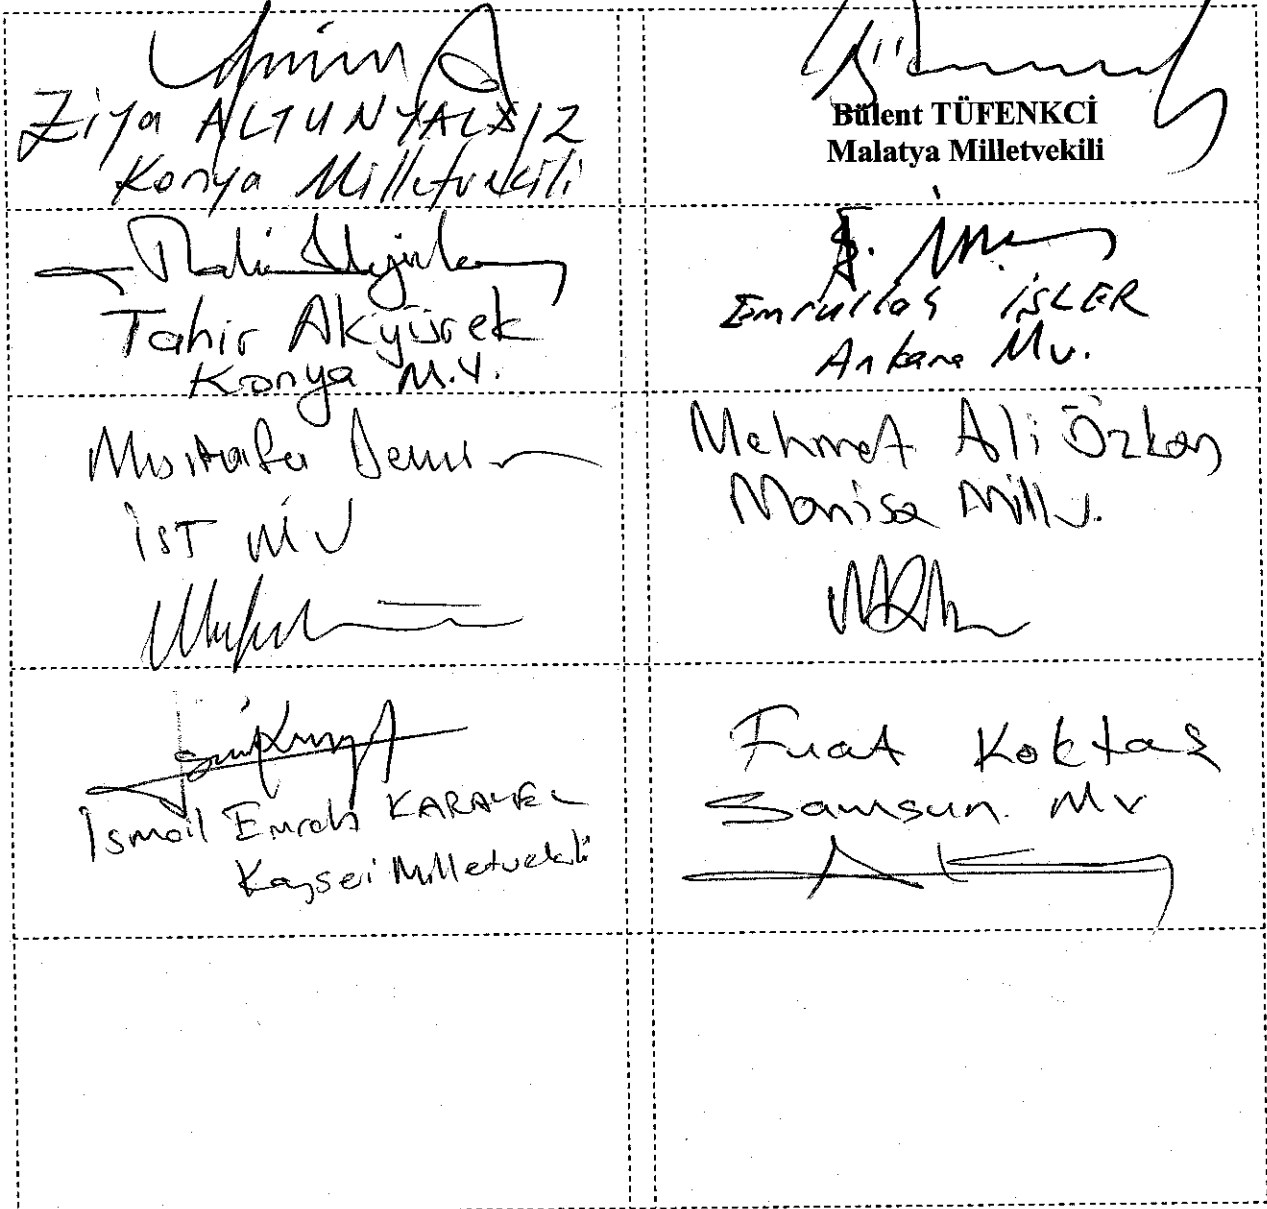 Ziya ALTUNYALDIZ
Konya Milletvekili
Bülent TÜFENKCİ
Malatya Milletvekili
Tahir Akyürek
Konya M.V.
Emrullah İŞLER
Ankara Mv.
Mustafa Demir
İST MV
Mehmet Ali Özkan
Manisa Mill v.
İsmail Emrah KARAYEL
Kayseri Milletvekili
Fuat Köktaş
Samsun Mv